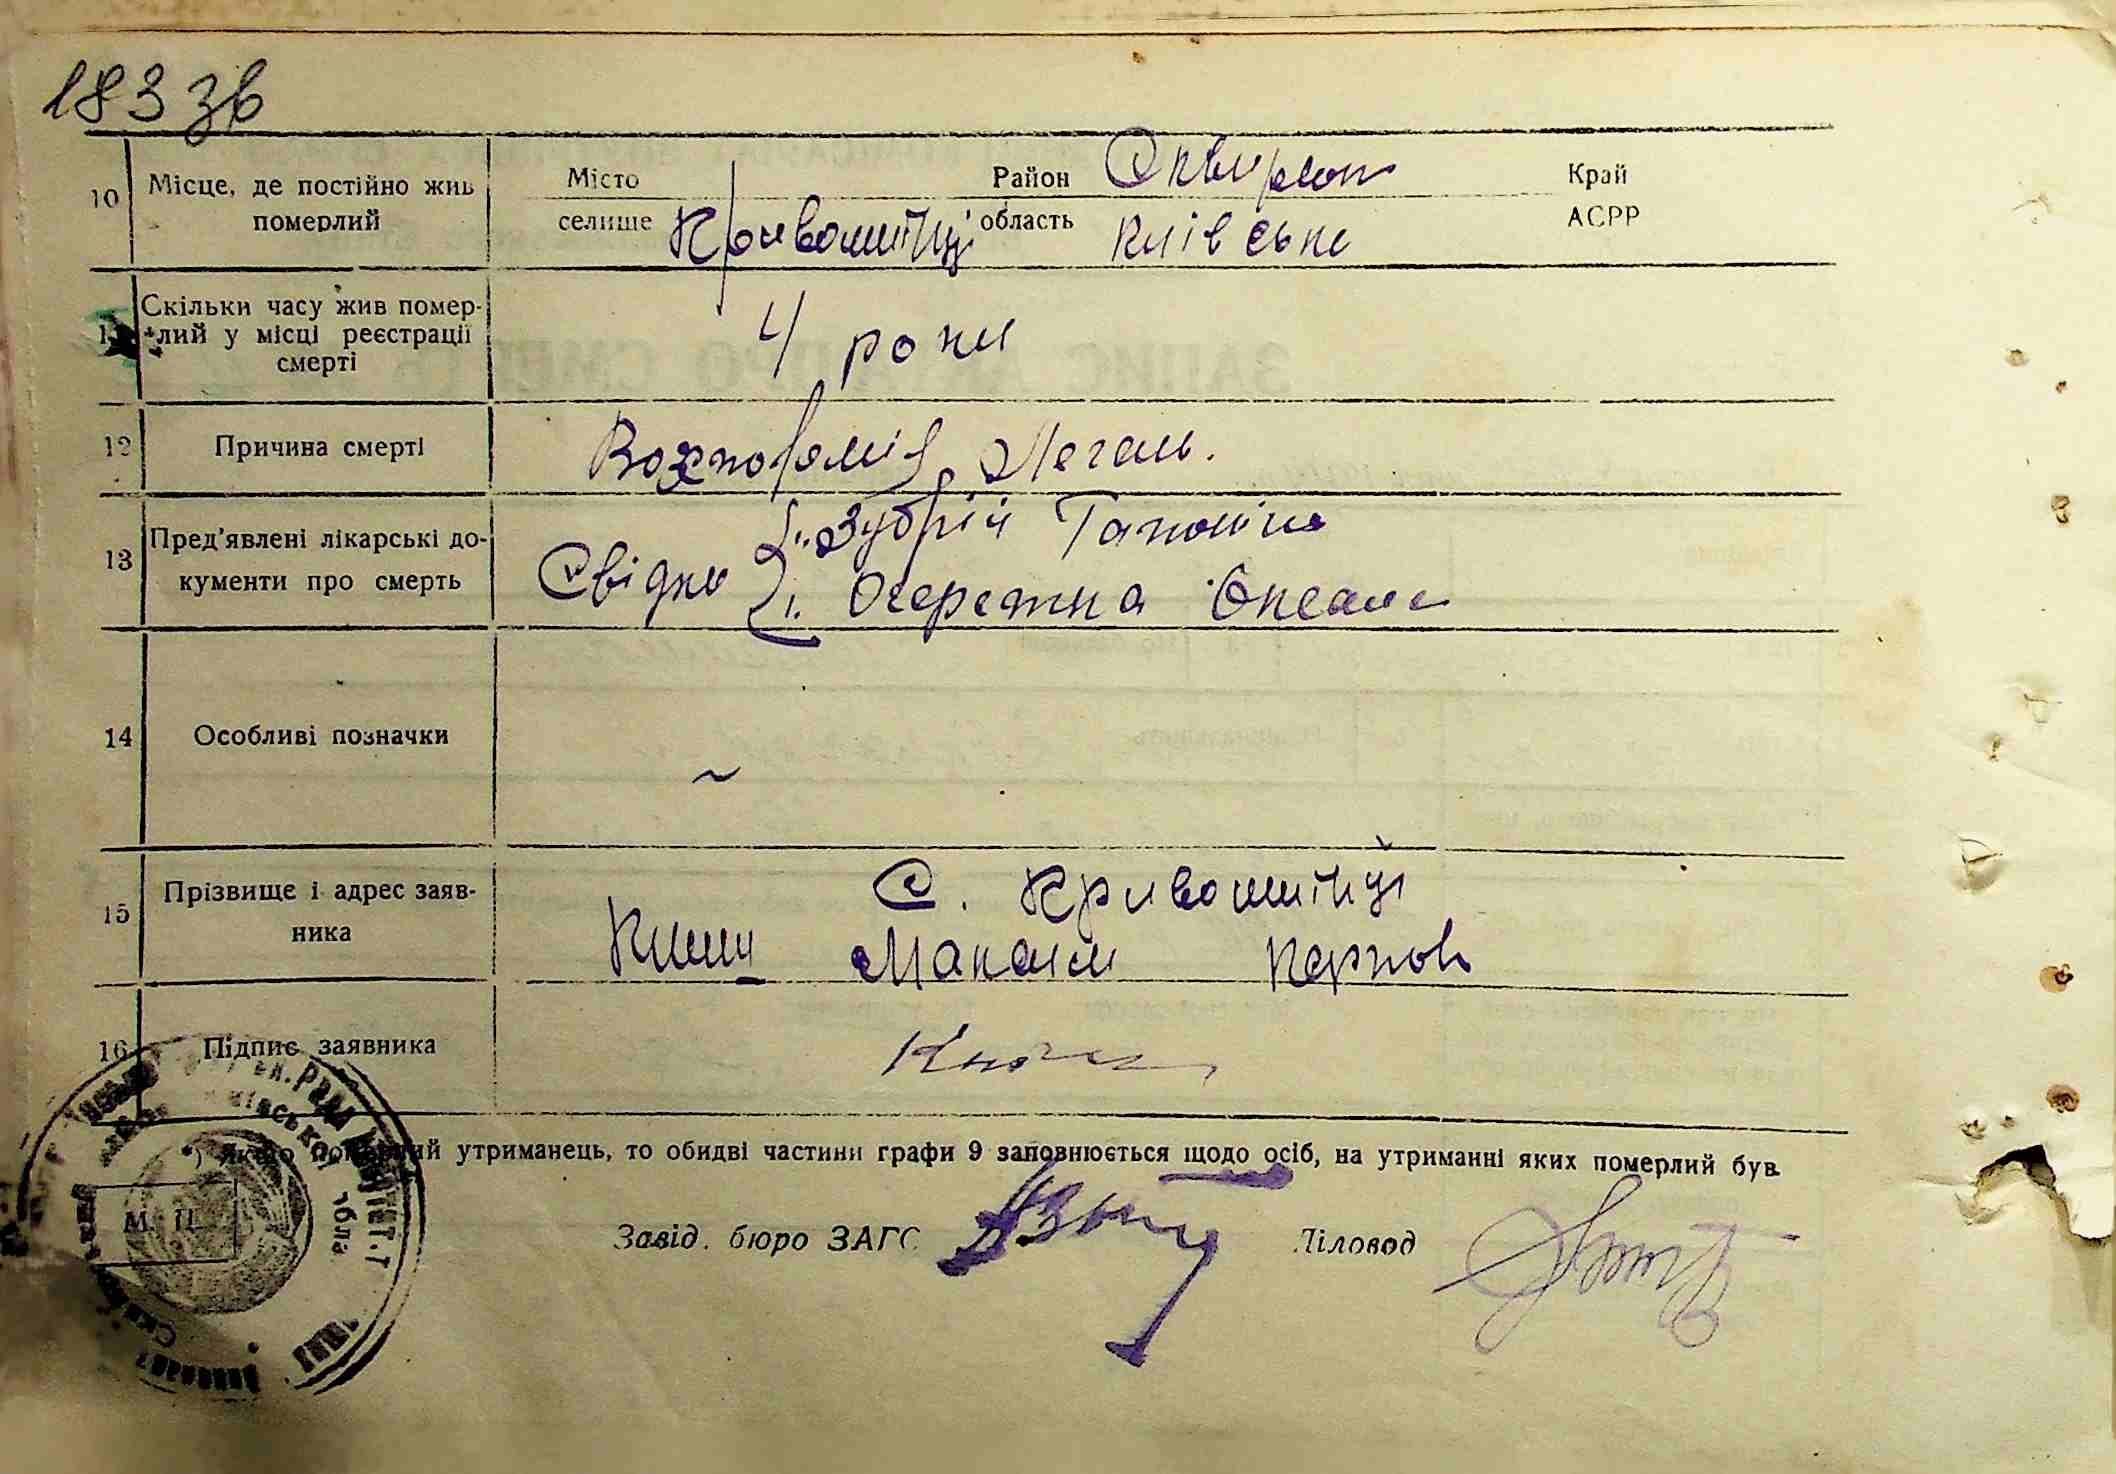 183 зв
10 Місце, де постійно жив померлий Місто Район Сквирськ Край
селище Кривошиїнці область Київська АСРР
11 Скільки часу жив померлий у місці реєстрації смерті 4 роки
12 Причина смерті Легень.
13 Пред'явлені лікарські документи про смерть Свідки 1. Зубрій
2. Очеретна Оксана
14 Особливі позначки ~
15 Прізвище і адрес заявника С. Кривошиїнці
Максим Карпов
16 Підпис заявника
*) Якщо померлий утриманець, то обидві частини графи 9 заповнюється щодо осіб, на утриманні яких померлий був.
М. П.
Завід. бюро ЗАГС Діловод